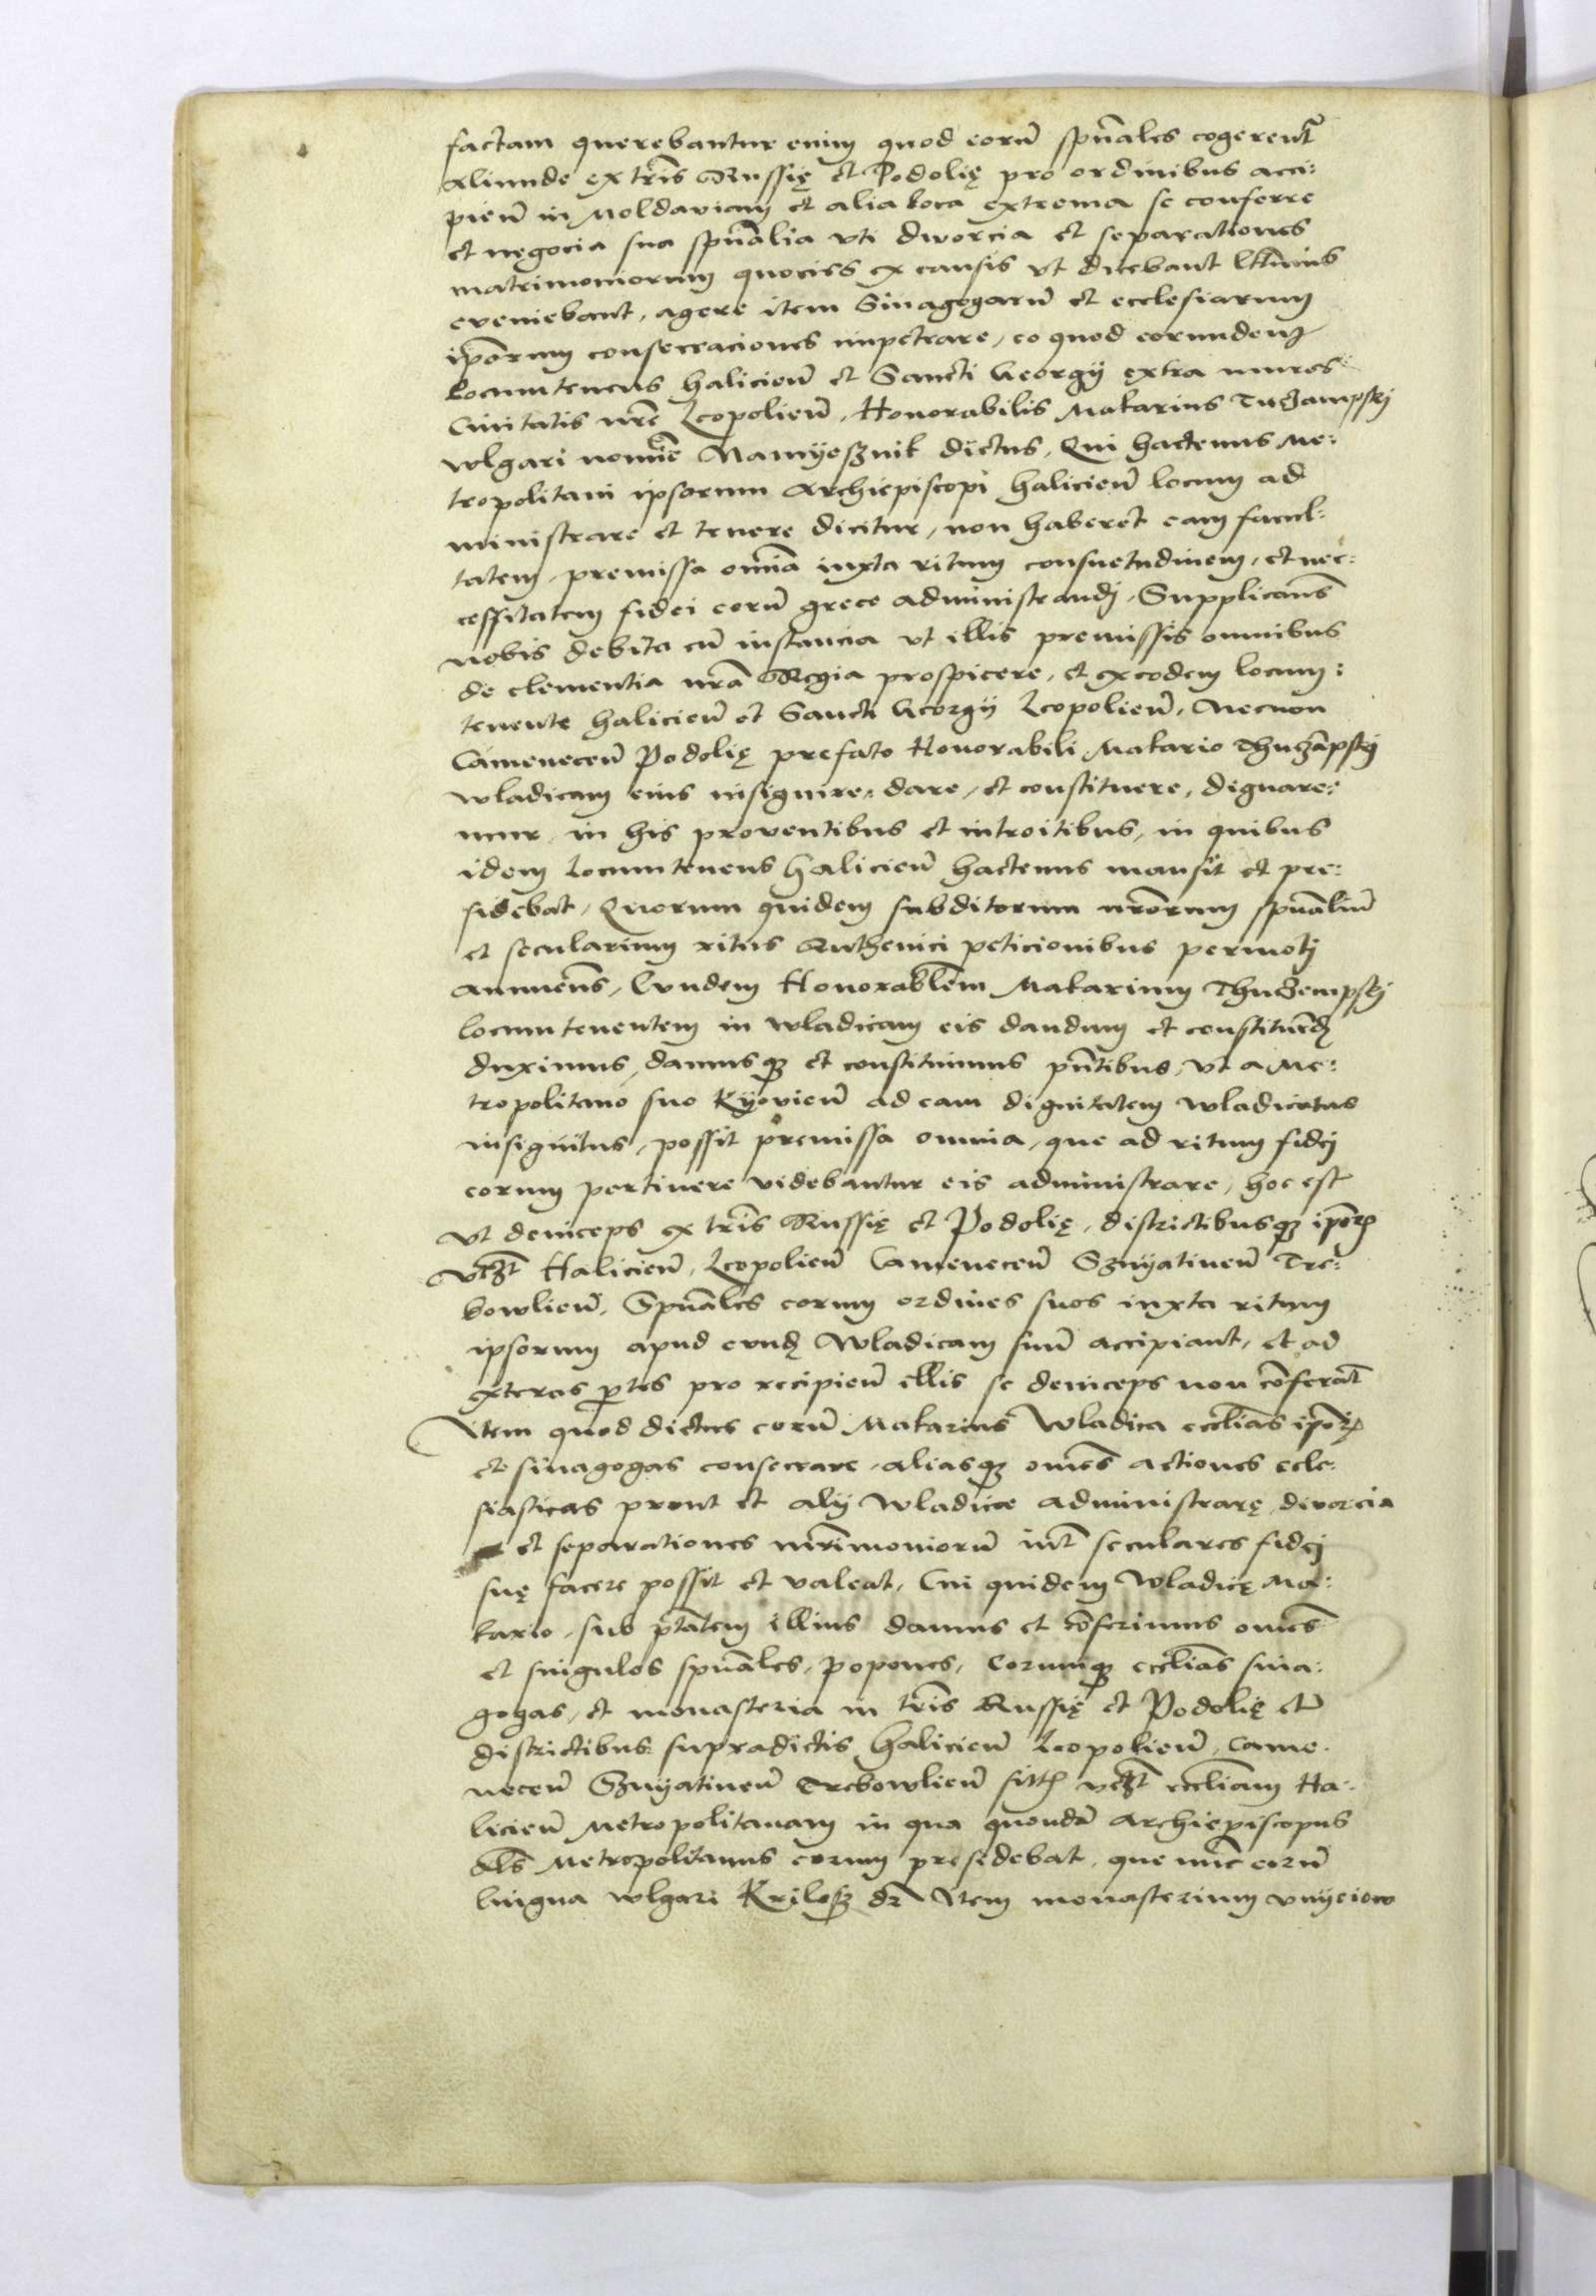 factam querebantur enim quod eorū spūales cogerent᷑
Aliunde ex tr̃is Russię et Podolię pro ordinibus acci:
pieñ in Moldaviam et alia loca extrema se conferre
et negocia sua spūalia vti divorcia et separationes
matrimoniorum quociens ex causis vt dicebant
eveniebant, agere item Sinagogarū et ecclesiarum
ip̃orum consecraciones impetrare, eo quod eorundem
Locumtenens halicieñ et Sancti Georgij extra muros
Civitatis nr̃e Leopolieñ, Honorabilis Makarius Tuczampskj
wlgari nomīe Namyesznik dictus, Qui hactenus Me:
tropolitani ipsorum Archiepiscopi halicieñ locum ad
ministrare et tenere dicitur, non haberet eam facul:
tatem, premissa om̃ia iuxta ritum consuetudinem, et nec:
cessitatem fidei eorū grece administrandj, Supplicañs
nobis debita cū instancia vt illis premissis omnibus
de clementia nr̃a Regia prospicere, et ex eodem locum:
tenente halicieñ et Sancti Georgij Leopolieñ, Necnon
Cameneceñ Podolię prefato Honorabili Makario Thuczāpskj
wladicam eius insignire, dare, et constituere, dignare:
mur, in his proventibus et introitibus, in quibus
idem Locumtenens halicieñ hactenus mansit et pre:
sidebat, Quorum quidem subditorum nr̃orum spūaliū
et secularium ritus Ruthenici peticionibus permotj
annueñs, Eundem Honorabl̃em Makarium Thuczempskj
locumtenentem in wladicam eis dandum et constituend̄
duximus, damusqꝫ et constituimus pñtibus, vt a Me:
tropolitano suo Kyovieñ ad eam dignitatem wladicatus
insignitus, possit premissa omnia, que ad ritum fidej
eorum pertinere videbantur eis administrare, hoc est
Vt deniceps ex tr̃is Russię et Podolię, districtibusqꝫ ip̃oꝝ
vcꝫt Halicieñ, Leopolieñ Cameneceñ Sznyatineñ Tre:
bowlieñ, Spūales eorum ordines suos iuxta ritum
ipsorum apud eund̄ Wladicam suū accipiant, et ad
exteras p̱tes pro recipieñ illis se deniceps non cōferāt
Item quod dictus eorū Makarius Wladica eccl̃ias ip̃oꝝ
et sinagogas consecrare, aliasqꝫ om̃es actiones eccle:
siasticas prout et alij Wladice administrarę, divorcia
et separationes mr̃imoniorū int᷑ seculares fidej
suę facere possit et valeat, Cui quidem Wladicę Ma:
kario, sub p̃tatem illius damus et cōferimus om̃es
et singulos spūales, popones, Eorumqꝫ eccl̃ias sina:
gogas, et monasteria in tr̃is Russię et Podolię et
districtibus supradictis halicieñ Leopolieñ, Came
neceñ Sznyatineñ Trebowlieñ sittꝭ vcꝫt eccl̃iam Ha:
licieñ Metropolitanam in qua quondā Archiepiscopus
al̃s Metropolitanus eorum presidebat, que nūc eorū
lingua wlgari Krilosz dr̃ Item monasterium vnyeiow